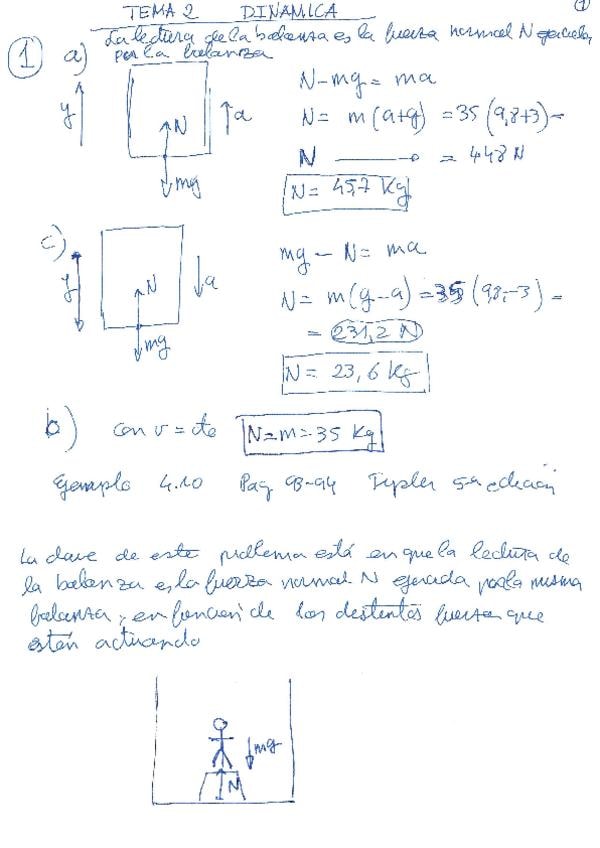 TEMA 2 DINAMICA
1
La lectura de la balanza es la fuerza normal N ejercida
por la balanza
1 a)
y
N
mg
a
N - mg = ma
N = m(a+g) = 35(9,8+3) =
N = 448 N
N = 45,7 Kg
c)
y
N
mg
a
mg - N = ma
N = m(g-a) = 35 (9,8-3) =
= 231,2 N
N = 23,6 Kg
b) con v = cte N=m=35 Kg
Ejemplo 4.10 Pag 93-94 Tipler 5ª edicion
La clave de este problema está en que la lectura de
la balanza es la fuerza normal N ejercida por la misma
balanza, en funcion de las distintas fuerzas que
están actuando
mg
N